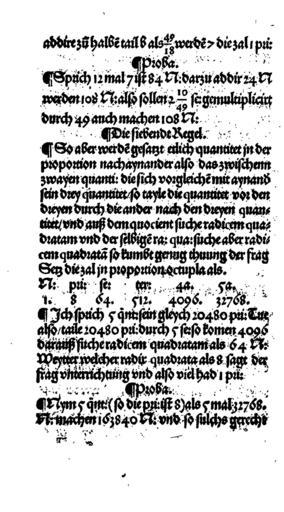 addire zů halbē tail b als 49/18 werdē 7 die zal 1 pri:
¶Proba.
¶Sprich 12 mal 7 ist 84 N: darzu addir 24 N
werden 108 N: also sollen 2 10/49 se: gemultiplicirt
durch 49 auch machen 108 N:
¶Die siebende Regel.
¶So aber werdē gesatzt etlich quantitet in der
proportion nachaynander also das zwischenn
zwayen quanti: die sich vorgleichē mit aynand
sein drey quantitet/ so tayle die quantitet vor den
dreyen durch die ander nach den dreyen quan-
titet/ vnd auß dem quocient suche radicem qua-
dratam vnd der selbigē ra: qua: suche aber radi-
cem quadratā so kumbt genug thuung der frag
Setz die zal in proportion octupla als.
N: pri: se: ter: 4a. 5a.
1. 8 64. 512. 4096. 32768.
¶Ich sprich 5 qnt: sein gleych 20480 pri: Tue
also/ taile 20480 pri: durch 5 se: so komen 4096
darauß suche radicem quadratam als 64 N:
Weytter welcher radix quadrata als 8 sagt der
frag vnterrichtung vnd also viel had 1 pri:
¶Proba.
¶Nym 5 qnt: (so die pri: ist 8) als 5 mal 32768.
N: machen 163840 N: vnd so sulchs gerecht